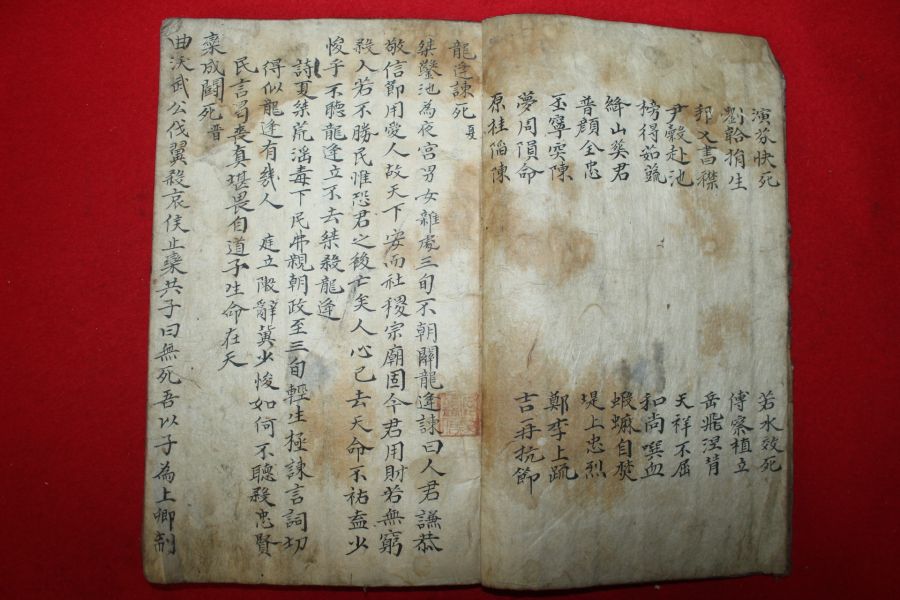 演芬快死
若水效死
劉韐捐生
傅察植立
邦乂書襟
岳飛涅背
尹穀赴池
天祥不屈
榜得茹蔬
和尚噀血
絳山葬君
蝦䗫自焚
普顔全忠
堤上忠烈
丕寧突陳
鄭李上疏
夢周隕命
吉再抗節
原桂陷陳
龍逄諫死 夏
桀鑿池為夜宮男女雜處三旬不朝關龍逄諫曰人君謙恭
敬信節用愛人故天下安而社稷宗廟固今君用財若無窮
殺人若不勝民惟恐君之後亡矣人心已去天命不祐盍少
悛乎不聽龍逄立不去桀殺龍逄
詩夏桀荒滛毒下民弗親朝政至三旬輕生極諫言詞切
得似龍逄有幾人 庭立陬辭冀少悛如何不聽殺忠賢
民言曷喪真堪畏自道予生命在天
欒成鬪死 晋
曲沃武公伐翼殺哀侯止欒共子曰無死吾以子為上卿制